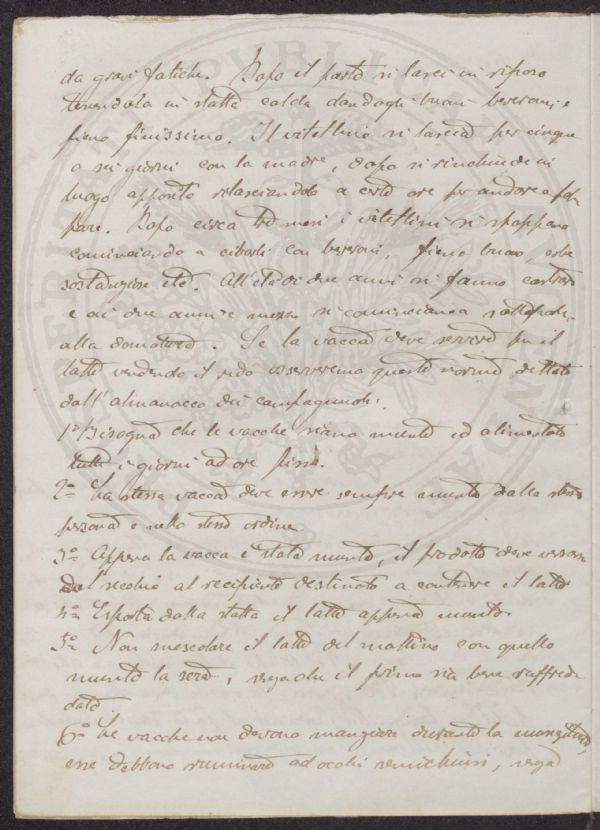 da gravi fatiche. Dopo il parto si lasci in riposo
tenendola in stalla calda dandogli buoni beveroni e
fieno finissimo. Il vitellino si lascia per cinque
o sei giorni con la madre, dopo si rinchiude in
luogo apposito rilasciandolo a certe ore per andare a pop-
pare. Dopo circa tre mesi i vitellini si spoppano
cominciando a cibarli con beveroni, fieno buono, erbe
etc. All'età di due anni si fanno castrare
e ai due anni e mezzo si cominciano a sottoporli
alla domatura. Se la vacca deve servire per il
latte vendendo il redo osserveremo queste norme dettate
dall'almanacco dei campagnoli:
1º Bisogna che le vacche siano munte ed alimentate
tutti i giorni ad ore fisse.
2º La stessa vacca deve essere sempre munta dalla stessa
persona e nello stesso ordine.
3º Appena la vacca è stata munta, il prodotto deve versarsi
dal secchio al recipiente destinato a contenere il latte
4º Esporta dalla stalla il latte appena munto.
5º Non mescolare il latte del mattino con quello
munto la sera, senza che il primo sia bene raffred-
dato.
6º Le vacche non devono mangiare durante la mungitura,
esse debbono ruminare ad occhi semichiusi, senza